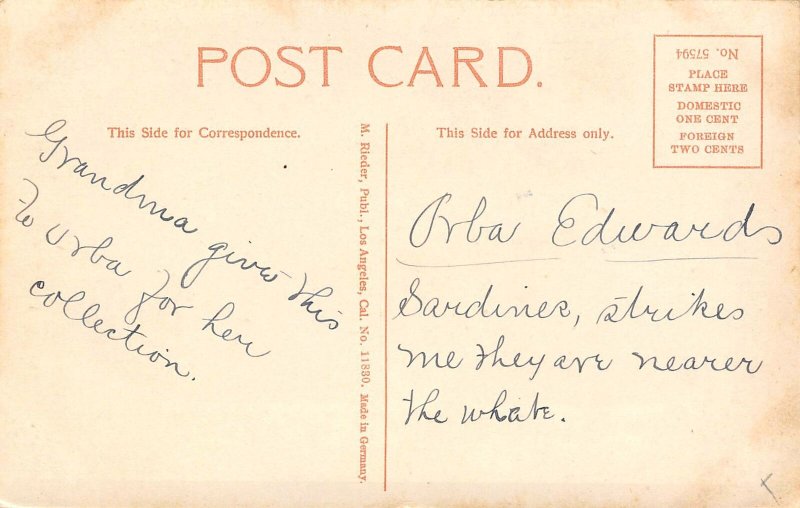 POST CARD.
No. 57594
PLACE
STAMP HERE
DOMESTIC
ONE CENT
FOREIGN
TWO CENTS
This Side for Correspondence.
This Side for Address only.
Grandma gives this
To Orba for her
collection.
M. Rieder, Publ., Los Angeles, Cal. No. 11830. Made in Germany.
Orba Edwards
Sardines, strikes
me they are nearer
the whale.